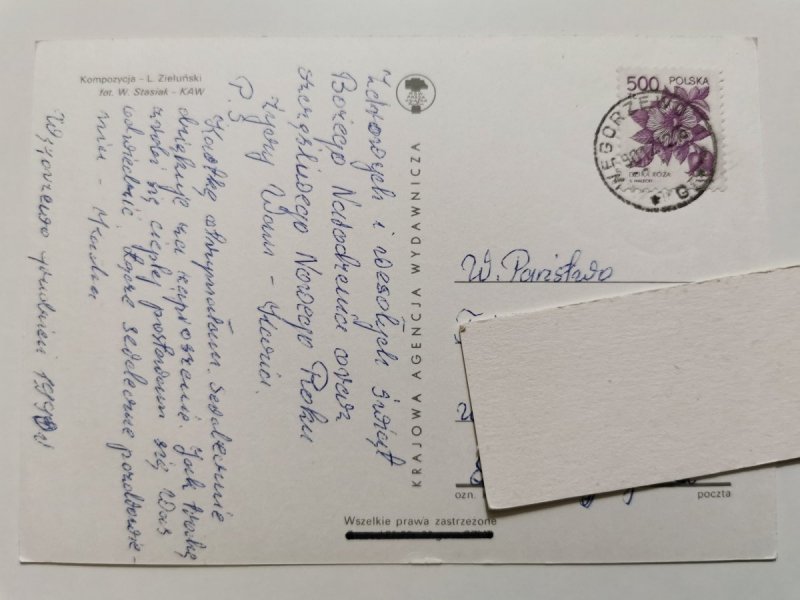 Kompozycja - L. Zieluński
fot. W. Stasiak - KAW
Zdrowych i wesołych świąt
Bożego Narodzenia oraz
szczęśliwego Nowego Roku
życzy Wam -
P.S
Kartkę otrzymałam. Serdecznie
dziękuję za zaproszenie. Jak trochę
zrobi się cieplej postaram się Was
odwiedzić. Łączę serdeczne pozdrowie-
nia -
Węgorzewo grudzień 1990r
KRAJOWA AGENCJA WYDAWNICZA
500 POLSKA
DZIKA RÓŻA
WĘGORZEWO
W. Państwo
ozn.
poczta
Wszelkie prawa zastrzeżone